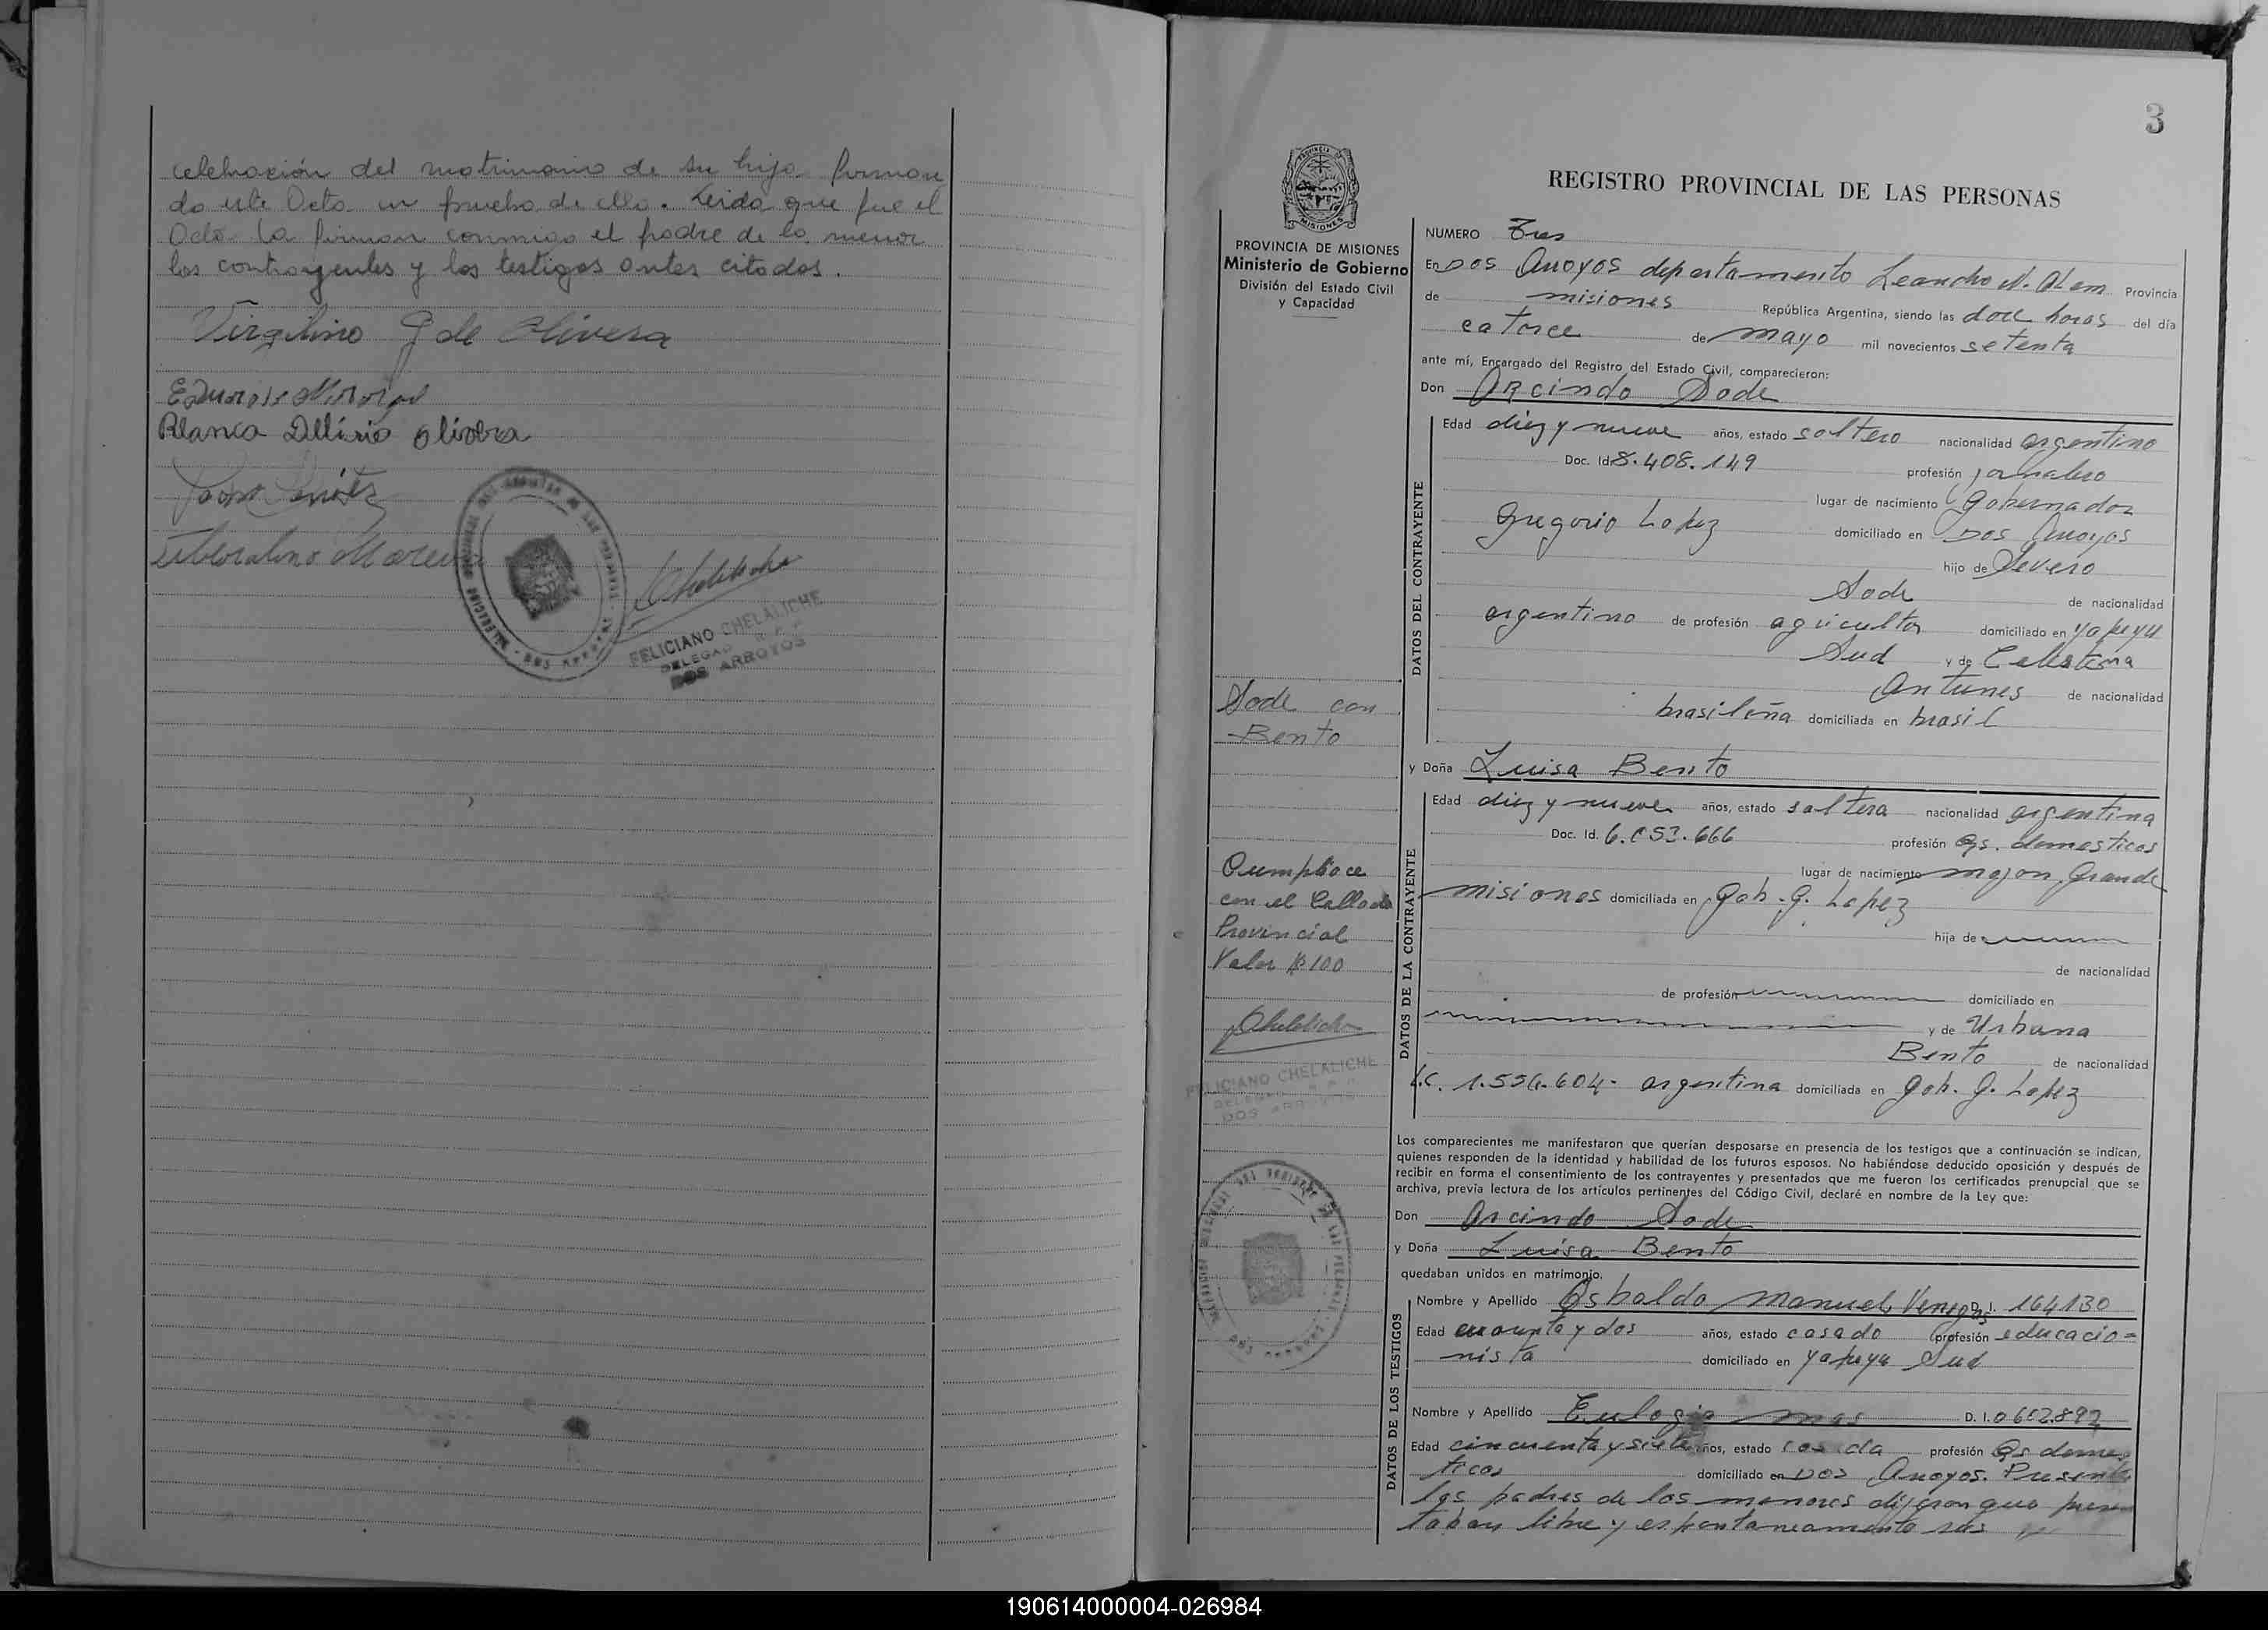 celebración del matrimonio de su hija firman
do este Acta en prueba de ello. Leida que fue el
Acta la firman conmigo el padre de la menor
los contrayentes y los testigos antes citados.
Virgilino G de Olivera
Blanca Olivera
Moreira
FELICIANO CHELALICHE
DELEGADO R.P.P.
DOS ARROYOS
3
REGISTRO PROVINCIAL DE LAS PERSONAS
PROVINCIA DE MISIONES
Ministerio de Gobierno
División del Estado Civil
y Capacidad
Sode con
Bento
Cumpliose
con el Sellado
Provincial
Valor $ 100
FELICIANO CHELALICHE
DELEGADO R.P.P.
DOS ARROYOS
NUMERO Tres
En Dos Arroyos departamento Leandro N. Alem Provincia
de misiones República Argentina, siendo las doce horas del día
catorce de mayo mil novecientos setenta
ante mí, Encargado del Registro del Estado Civil, comparecieron:
Don Arcindo Sode
DATOS DEL CONTRAYENTE
Edad diez y nueve años, estado soltero nacionalidad argentino
Doc. Id. 8.408.149 profesión jornalero
lugar de nacimiento Gobernador
Gregorio Lopez domiciliado en Dos Arroyos
hijo de Severo
Sode de nacionalidad
argentino de profesión agricultor domiciliado en Yapeyu
Sud y de Celestina
Antunes de nacionalidad
brasileña domiciliada en brasil
y Doña Luisa Bento
DATOS DE LA CONTRAYENTE
Edad diez y nueve años, estado soltera nacionalidad argentina
Doc. Id. 6.053.666 profesión Qs. domesticos
lugar de nacimiento mojon Grande
misiones domiciliada en Gob. G. Lopez
hija de
de nacionalidad
de profesión domiciliado en
y de Urbana
Bento de nacionalidad
L.C. 1.556.604- argentina domiciliada en Gob. G. Lopez
Los comparecientes me manifestaron que querían desposarse en presencia de los testigos que a continuación se indican,
quienes responden de la identidad y habilidad de los futuros esposos. No habiéndose deducido oposición y después de
recibir en forma el consentimiento de los contrayentes y presentados que me fueron los certificados prenupcial que se
archiva, previa lectura de los artículos pertinentes del Código Civil, declaré en nombre de la Ley que:
Don Arcindo Sode
y Doña Luisa Bento
quedaban unidos en matrimonio.
DATOS DE LOS TESTIGOS
Nombre y Apellido Osbaldo manuel Venegas D. I. 164130
Edad cuarenta y dos años, estado casado profesión educacio=
nista domiciliado en Yapeyu Sud
Nombre y Apellido Eulogia mas D. I. 0602892
Edad cincuenta y siete años, estado casada profesión Qs domes
ticos domiciliado en Dos Arroyos. Presente
los padres de los menores dijeron que pres
taban libre y espontaneamente sus
190614000004-026984